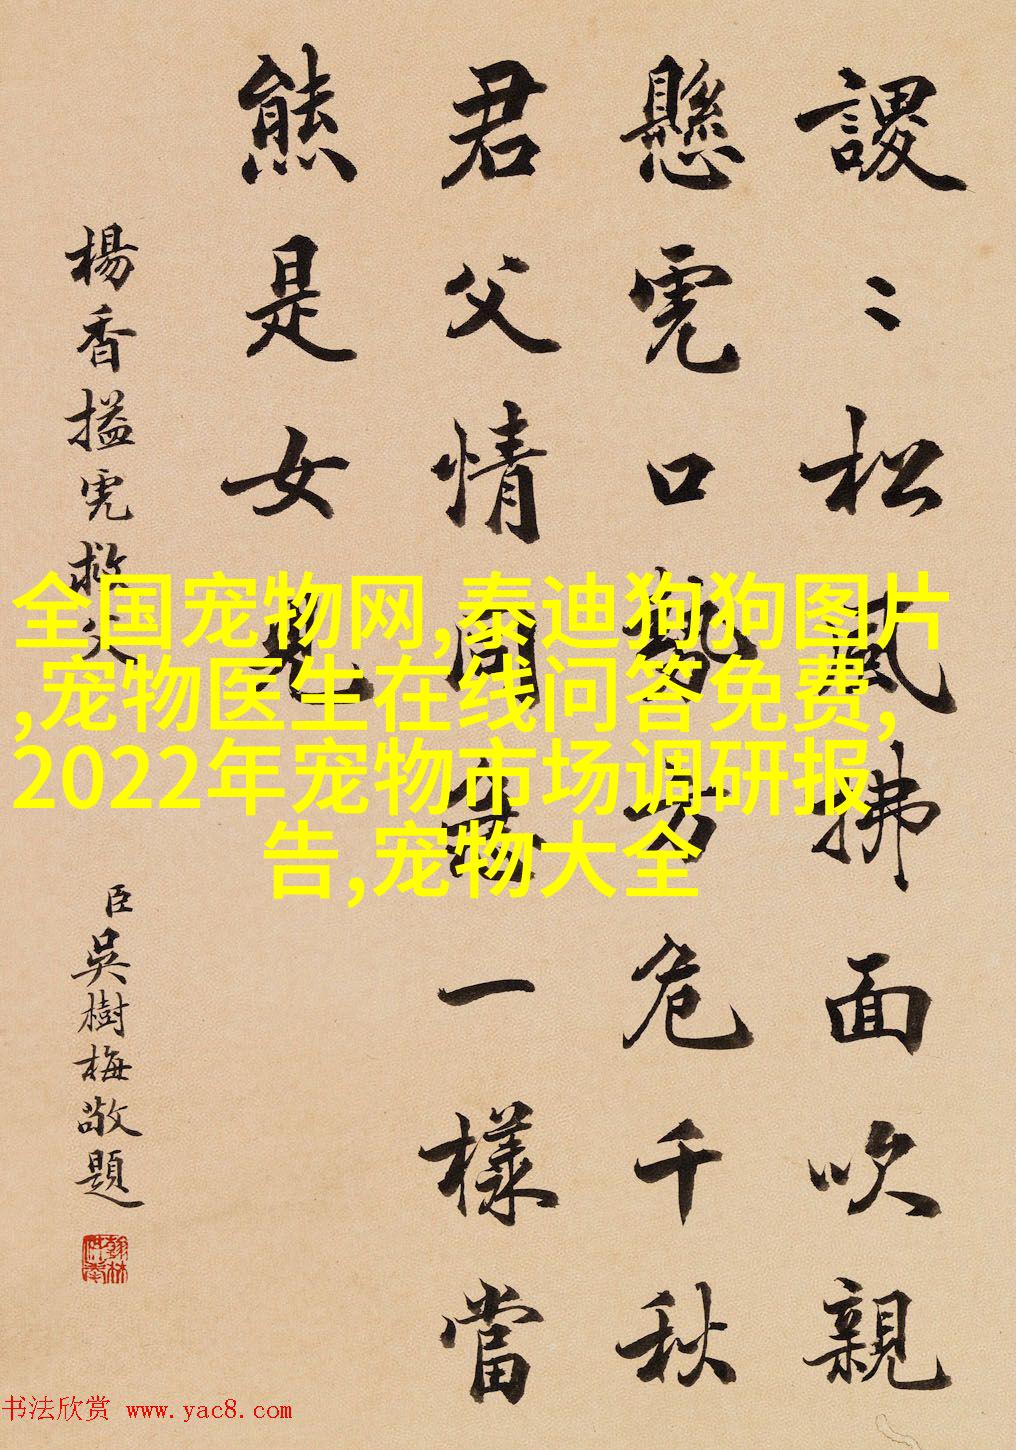 謖〻松風拂面吹親
懸虎口勢方危千秋
君父情同意一樣當
熊是女兒
楊香搤虎救父
臣吳樹梅敬題
全国宠物网,泰迪狗狗图片
,宠物医生在线问答免费,
2022年宠物市场调研报
告,宠物大全
书法欣赏 www.yac8.com